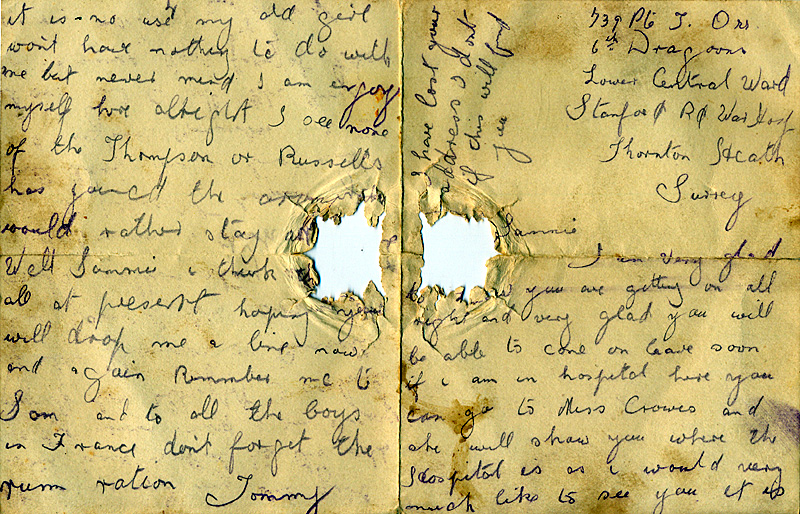 739 Pte T. Orr
6th Dragoons
Lower Central Ward
Stanford Rd War Hosp
Thornton Heath
Surrey
I have lost your
address & dont
if this will find
you
Sammie
I am very glad
to know you are getting on all
right and very glad you will
be able to come on leave soon
if i am in hospital here you
can go to Miss Crowes and
she will show you where the
Hospital is as i would very
much like to see you it is
it is no use my old girl
wont have nothing to do with
me but never mind I am enjoy
myself here alright I see none
of the Thompson or Russells
has joined the
would rather stay
Well Sammie i think
all at present hoping you
will drop me a line now
and again Remember me to
Sam and to all the boys
in France dont forget the
rum ration Tommy